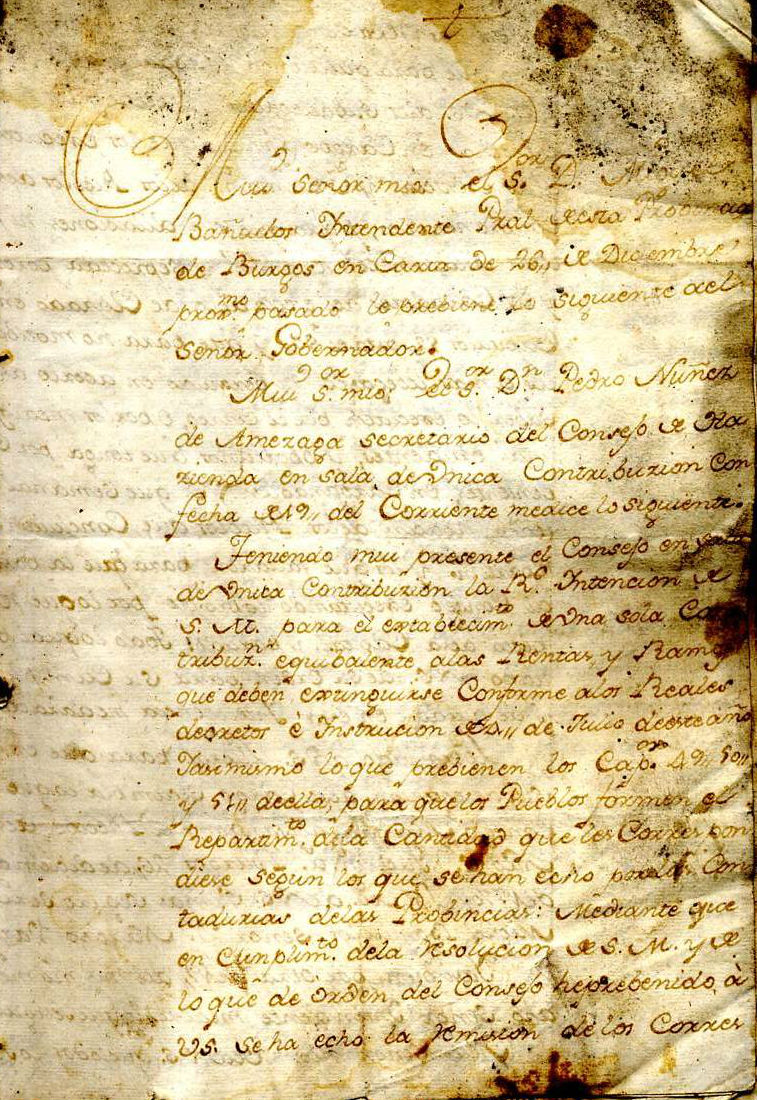 Mui señor mio: el S.or D.
Bañuelos Intendente Pral. de esta Probincia
de Burgos en Carta de 26,, de Diciembre
prox.mo pasado le prebiene lo siguiente del
señor Gobernador.
Mui s.or mio: el s.or D.n Pedro Nuñez
de Amezaga secretario del Consejo de Ha
zienda en sala de vnica Contribuzion con
fecha de 19,, del Corriente me dice lo siguiente.
Teniendo mui presente el Consejo en sala
de vnica Contribuzion la R.l Intencion de
S. M. para el establecim.to de vna sola Con
tribuz.n equibalente a las Rentas, y Ramos
que deben extinguirse Conforme a los Reales
decretos è Instrucion de 4,, de Julio de este año
Y asimismo lo que prebienen los Cap.os 49,, 50,,
y 51,, de ella, para que los Pueblos formen el
Repartim.to de la Cantidad que les Corres pon
diese segun los que se han echo por las Con
tadurias de las Probincias: Mediante que
en Cunplim.to de la resolucion de S. M. y de
lo que de orden del Consejo he prebenido à
VS. se ha echo la remision de los Corres